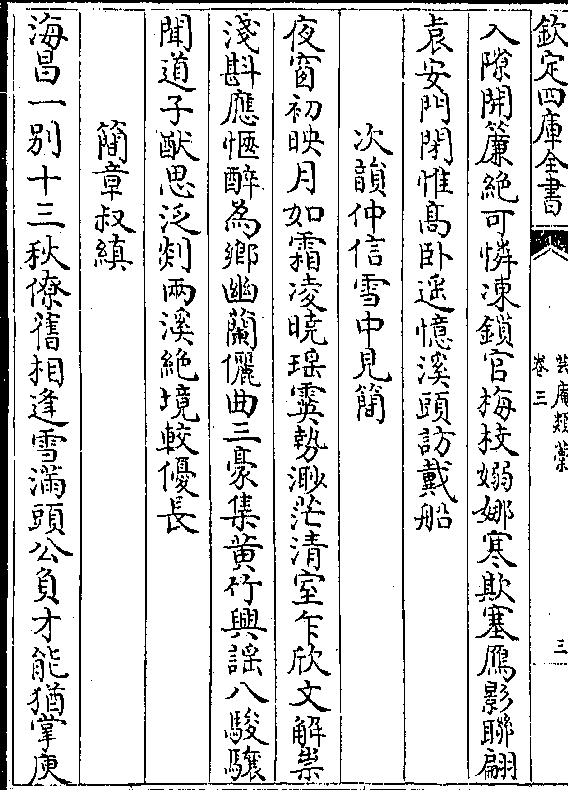 欽定四庫全書
芸庵類藁
卷三
三
入隙開簾絶可憐凍鎖官梅枝嫋娜寒欺塞鴈影聯翩
袁安門閉惟髙卧遥憶溪頭訪戴船
次韻仲信雪中見簡
夜窗初映月如霜凌曉瑶霙勢渺茫清室乍欣文解祟
淺斟應愜醉為鄉幽蘭儷曲三豪集黄竹興謡八駿驤
聞道子猷思泛剡兩溪絶境較優長
簡章叔縝
海昌一别十三秋僚舊相逢雪滿頭公負才能猶掌庾